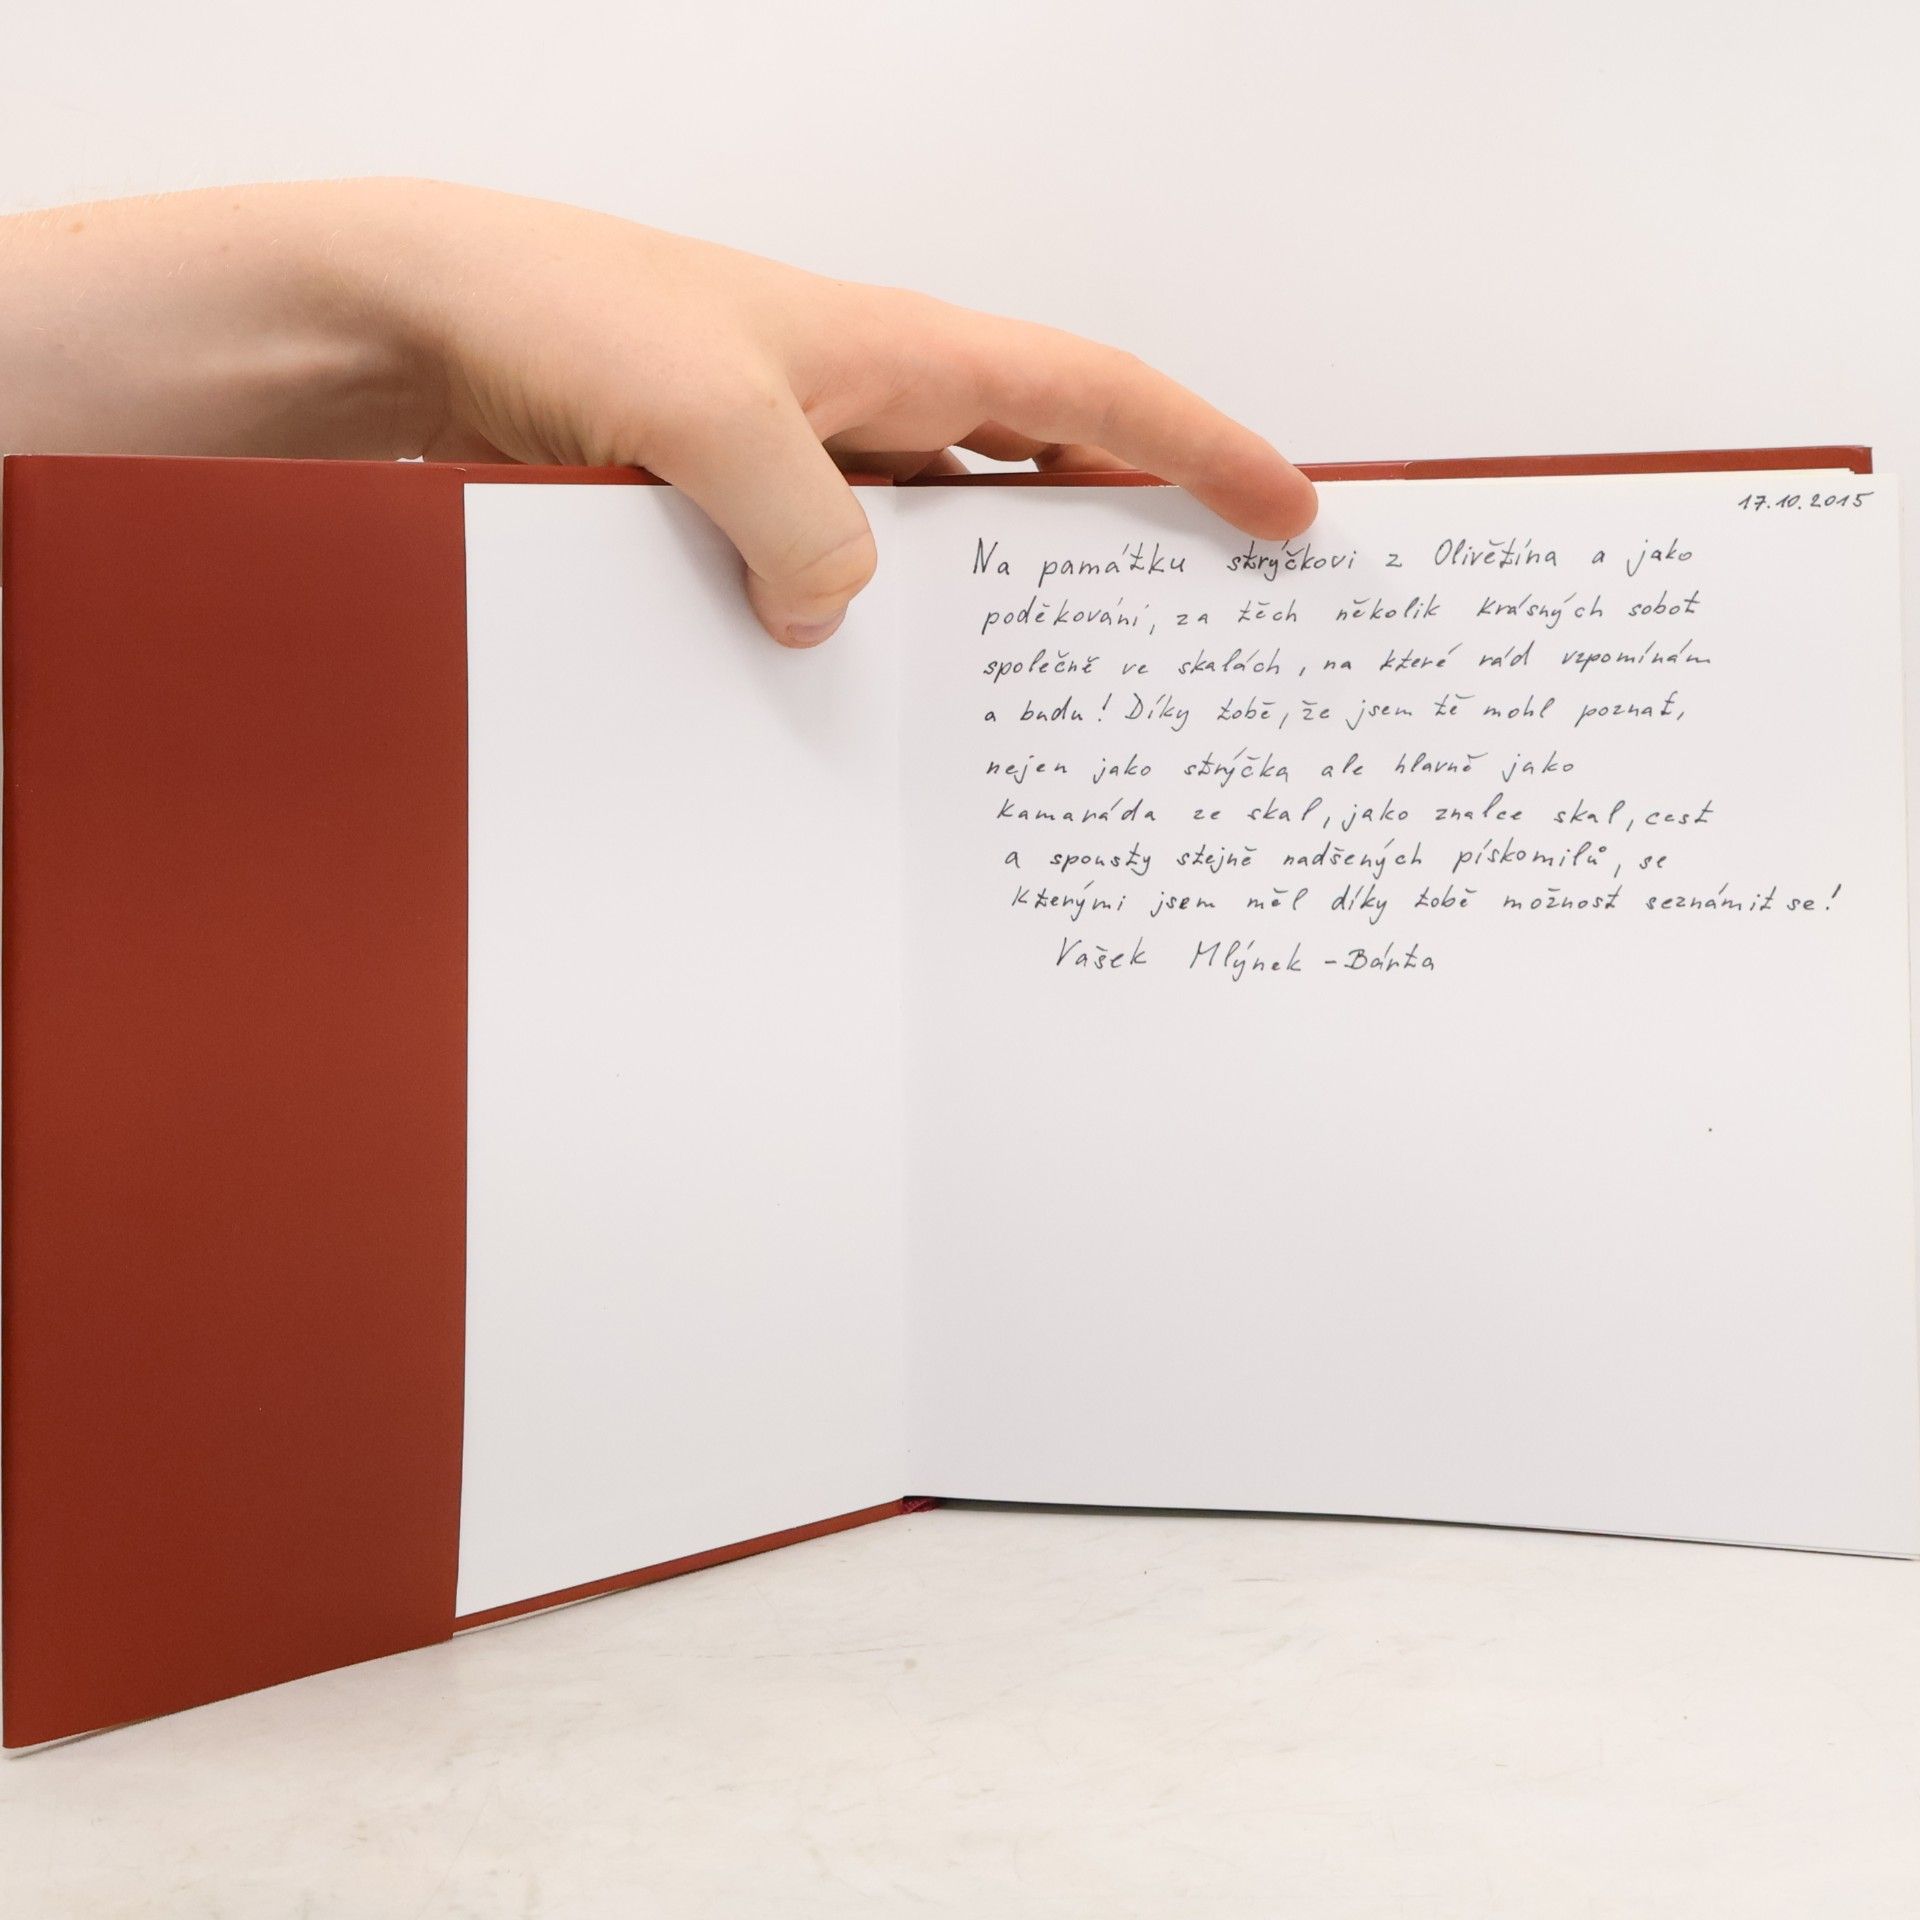 17.10.2015
Na památku strýčkovi z Olivětína a jako
poděkování, za těch několik krásných sobot
společně ve skalách, na které rád vzpomínám
a budu! Díky tobě, že jsem tě mohl poznat,
nejen jako strýčka ale hlavně jako
kamaráda ze skal, jako znalce skal, cest
a spousty stejně nadšených pískomilů, se
kterými jsem měl díky tobě možnost seznámit se!
Vašek Mlýnek - Bárta